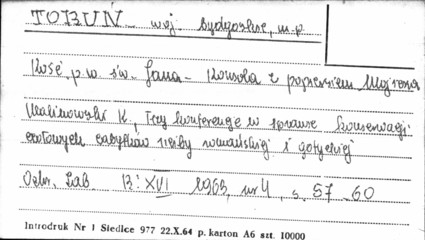 TORUŃ woj. bydgoskie, m.p.
Kość. p.w. św. Jana - Konsola z popiersiem Mojżesza
Malinowski K. Trzy konferencje w sprawie konserwacji
czołowych zabytków rzeźby romańskiej i gotyckiej
Ochr. Zab. R: XVI 1963, nr 4, s. 57-60
Introdruk Nr 1 Siedlce 977 22.X.64 p. karton A6 szt. 10000